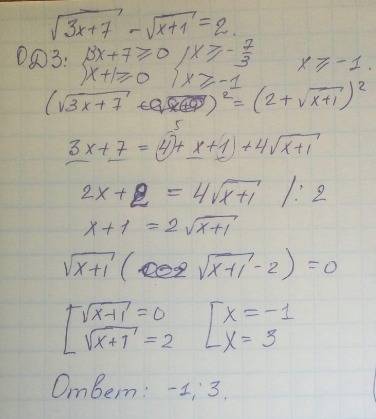 √(3x+7) - √(x+1) = 2.
ОДЗ: { 3x+7 ≥ 0 { x ≥ -7/3
x+1 ≥ 0 x ≥ -1 x ≥ -1.
(√(3x+7))² = (2+√(x+1))²
5
3x + 7 = 4 + x + 1 + 4√(x+1)
2x + 2 = 4√(x+1) /: 2
x + 1 = 2√(x+1)
√(x+1) (√(x+1) - 2) = 0
[ √(x+1) = 0 [ x = -1
√(x+1) = 2 x = 3
Ответ: -1; 3.